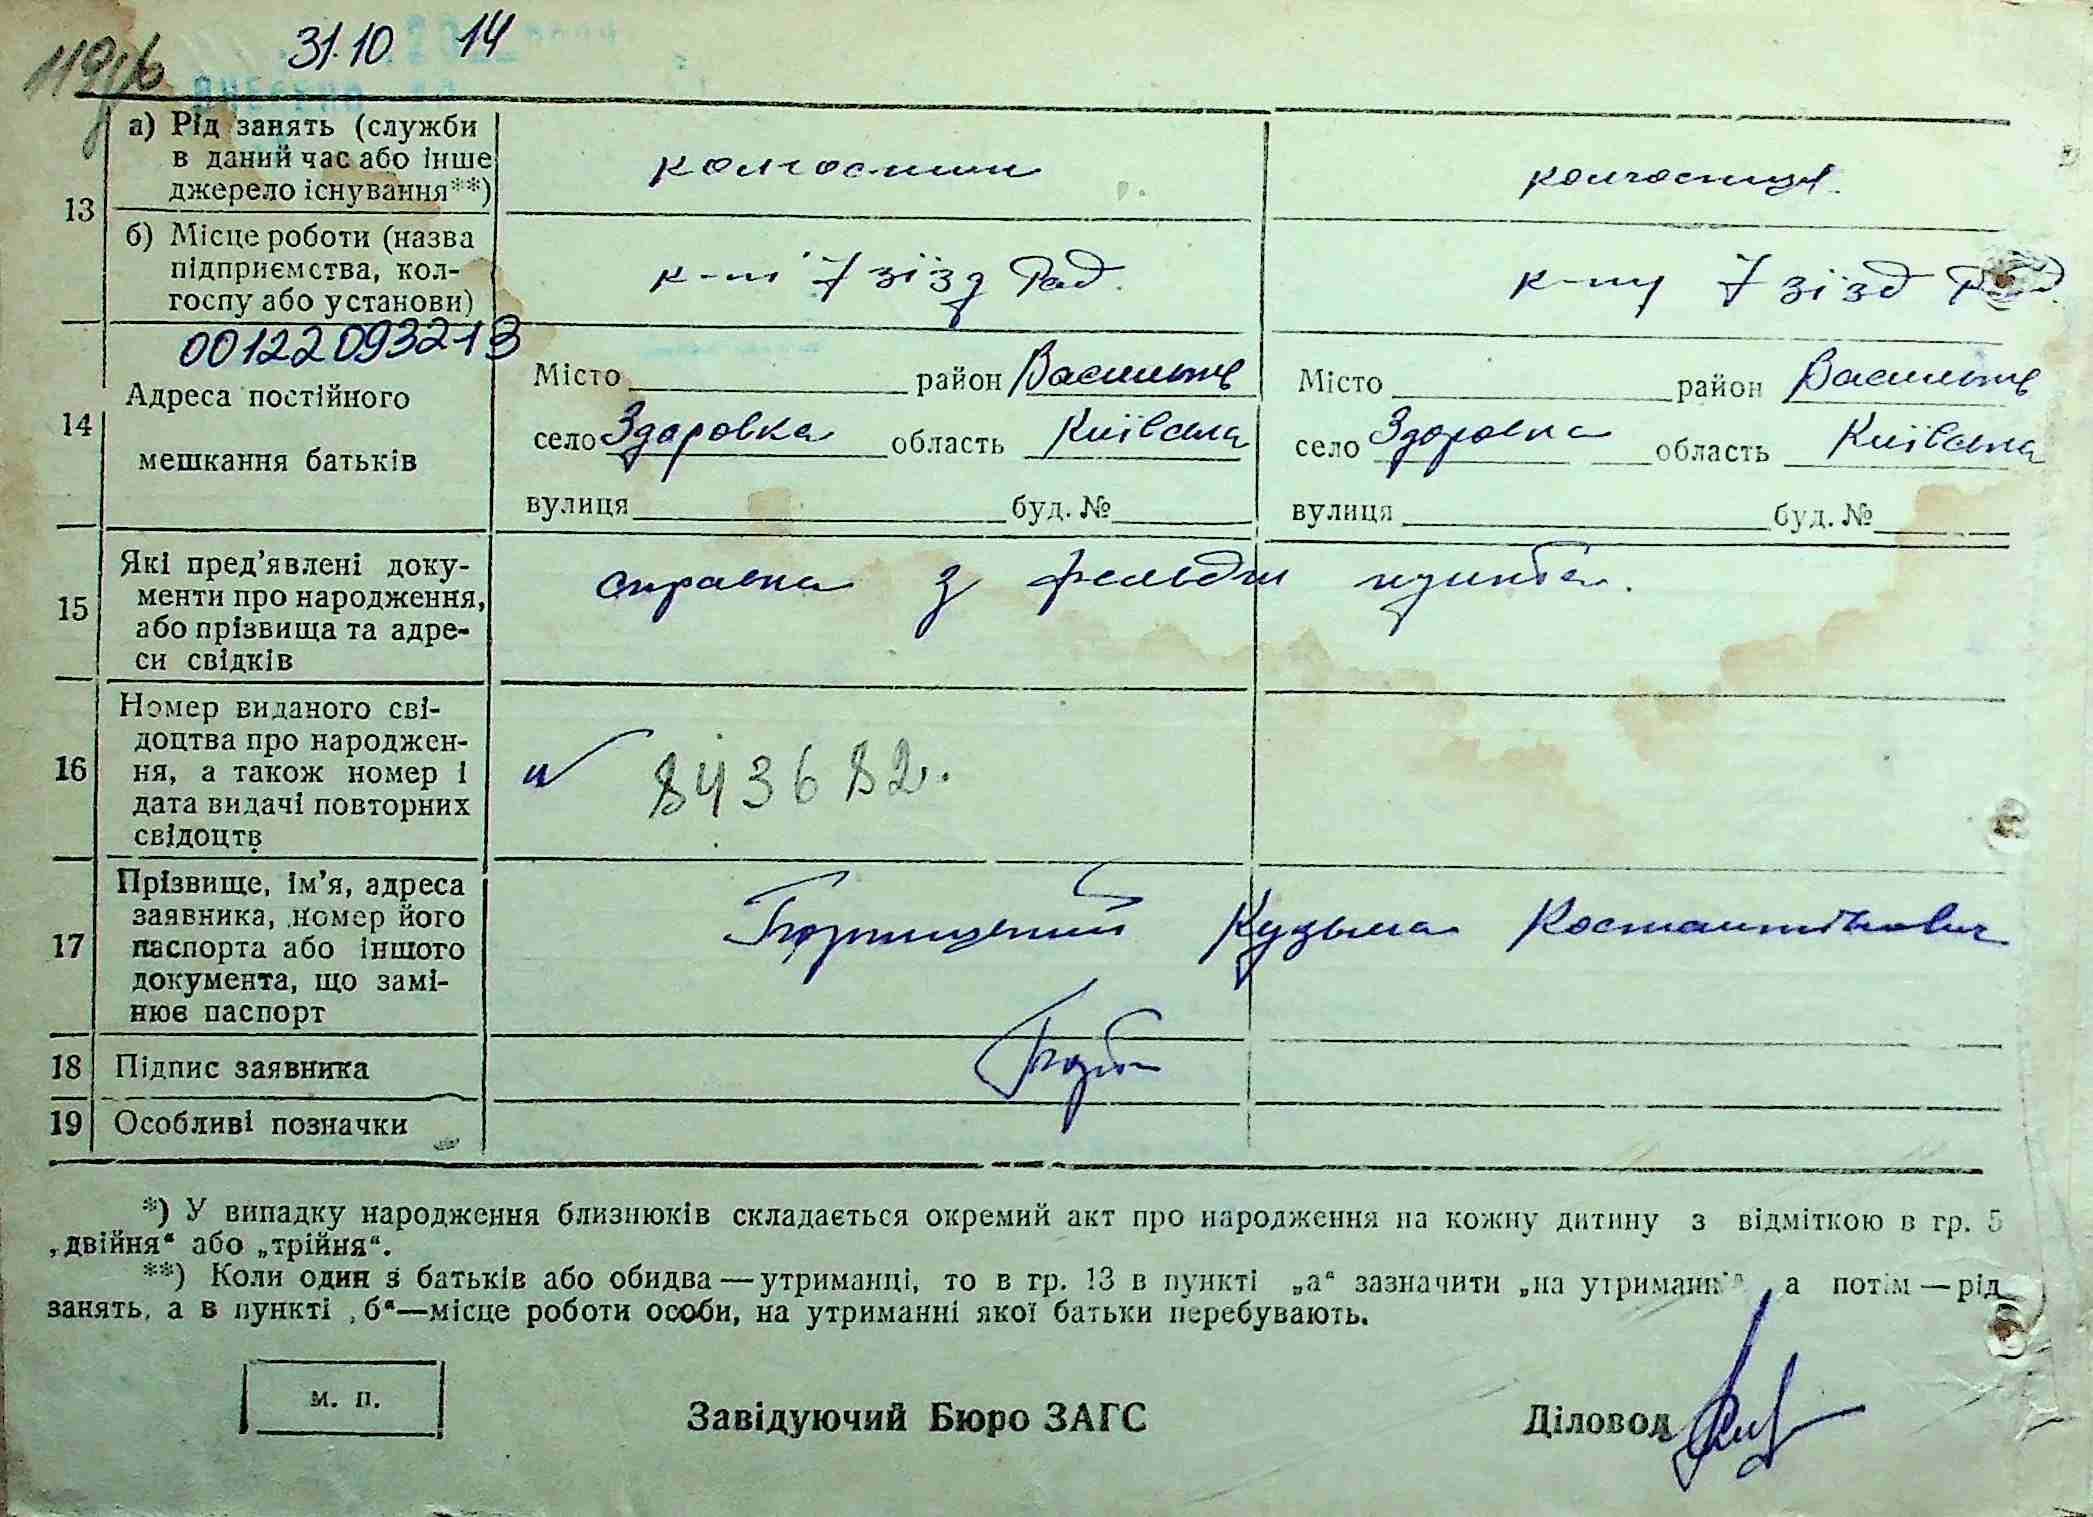 31.10 14
а) Рід занять (служби
в даний час або інше
джерело існування**)
колгоспник
колгоспниця.
13
б) Місце роботи (назва
підприємства, кол-
госпу або установи)
к-п 7 зїзд Рад.
к-пу 7 зїзд Рад.
00122093213
14
Адреса постійного
мешкання батьків
Місто район Васильків
село Здоровка область Київська
вулиця буд. №
Місто район Васильків
село Здоровка область Київська
вулиця буд. №
15
Які пред'явлені доку-
менти про народження,
або прізвища та адре-
си свідків
справка з фельдш пункта.
16
Номер виданого сві-
доцтва про народжен-
ня, а також номер і
дата видачі повторних
свідоцтв
843682.
17
Прізвище, ім'я, адреса
заявника, номер його
паспорта або іншого
документа, що замі-
нює паспорт
Кузьма Костантинович
18 Підпис заявника
19 Особливі позначки
*) У випадку народження близнюків складається окремий акт про народження на кожну дитину з відміткою в гр. 5
„двійня“ або „трійня“.
**) Коли один з батьків або обидва — утриманці, то в гр. 13 в пункті „а“ зазначити „на утриманні“, а потім — рід
занять, а в пункті „б“—місце роботи особи, на утриманні якої батьки перебувають.
м. п.
Завідуючий Бюро ЗАГС
Діловод